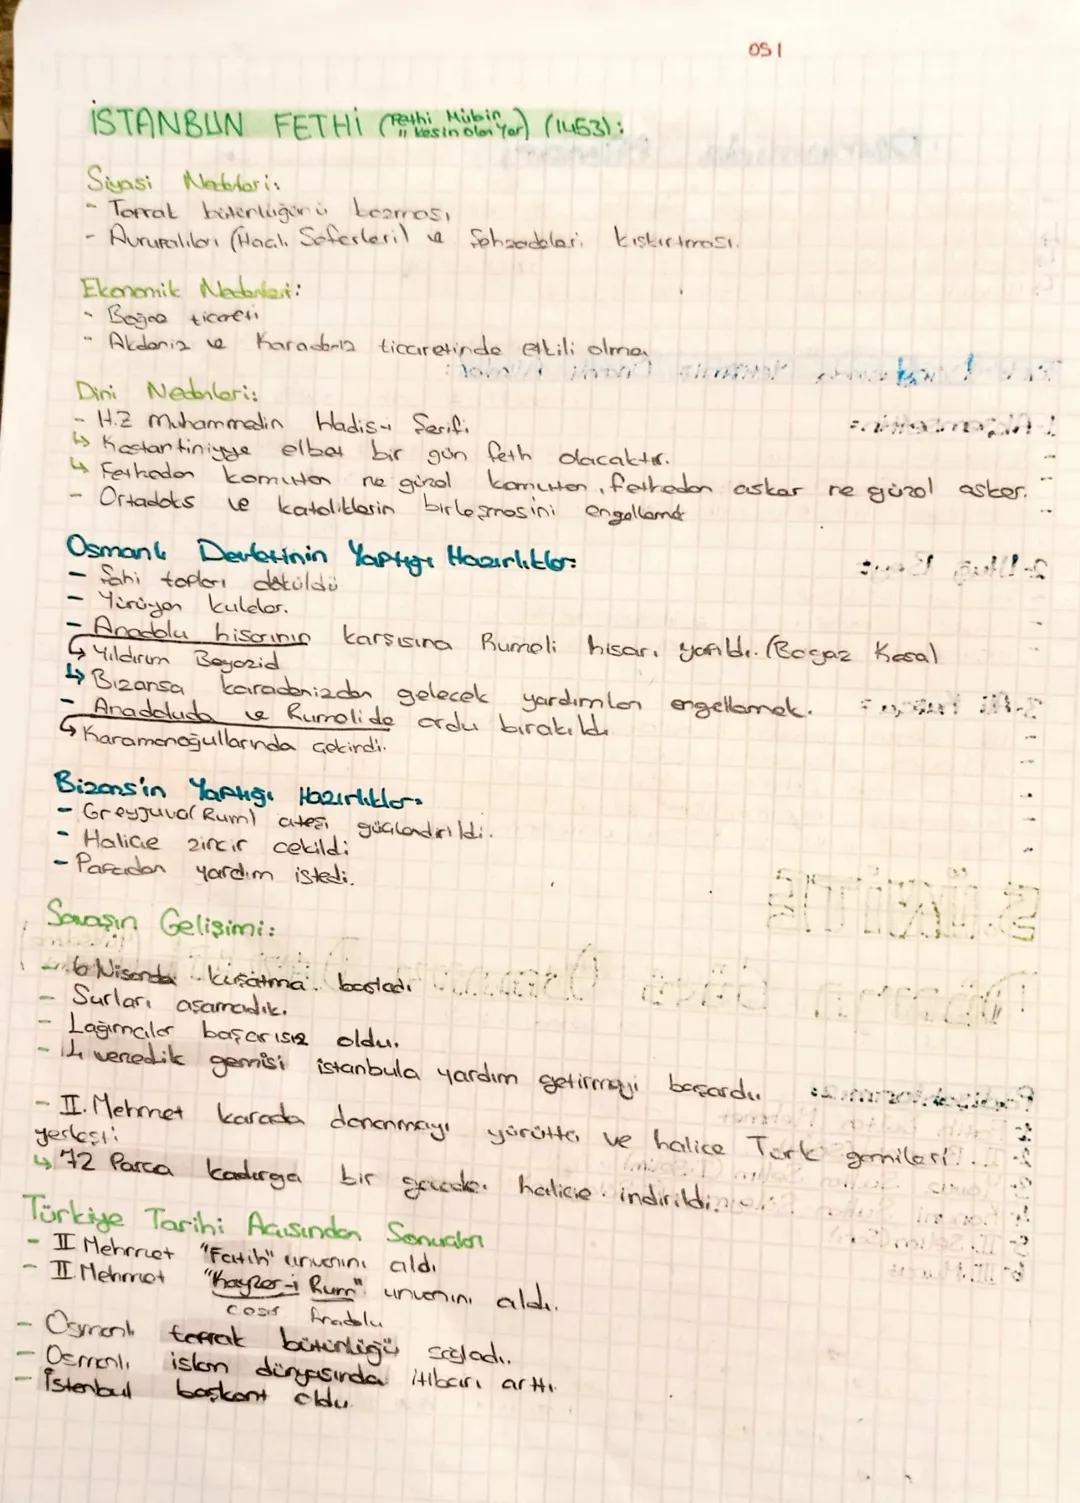 OSI
İSTANBUN FETHİ (Fethi Mübin (1453):
"kesin olan Yer)
Siyasi Nedenleri:
- Toprak bütünlüğünü bozması
- Avrupalıları (Haçlı Seferleri) ve Şehzadeleri kışkırtması.
Ekonomik Nedenleri:
- Boğaz ticareti
- Akdeniz ve Karadeniz ticaretinde etkili olma
Dini Nedenleri:
- HZ Muhammedin Hadis-i Şerifi
↳ Kostantiniyye elbet bir gün feth olacaktır.
↳ Fetheden komutan ne güzel komutan, fetheden asker ne güzel asker.
- Ortadoks ve katoliklerin birleşmesini engellemek
Osmanlı Devletinin Yaptığı Hazırlıklar:
- Şahi topları döküldü
- Yürüyen kuleler.
- Anadolu hisarının karşısına Rumeli hisarı yapıldı. (Bogaz Kesen)
↳ Yıldırım Beyazid
↳ Bizansa karadenizden gelecek yardımları engellemek.
- Anadoluda ve Rumelide ordu bırakıldı
↳ Karamanoğullarında çekindi.
Bizans'in Yaptığı Hazırlıklar:
- Greyjuva(Rum) ateşi güçlendirildi.
- Halice zincir çekildi
- Papadan yardım istedi.
Savaşın Gelişimi:
- 6 Nisanda kuşatma başladı
- Surları aşamadık.
- Lağımcılar başarısız oldu.
- 4 venedik gemisi istanbula yardım getirmeyi başardı.
- II. Mehmet karada donanmayı yürüttü ve halice Türk gemileri
yerleşti
↳ 72 Parça kadırga bir gecede halice indirildi.
Türkiye Tarihi Açısından Sonuçları
- II Mehmet "Fatih" unvanını aldı
- II. Mehmet "Kayzer-i Rum" unvanını aldı.
Anadolu
- Osmanlı toprak bütünlüğü sağladı.
- Osmanlı islam dünyasında itibarı arttı
- İstanbul başkent oldu